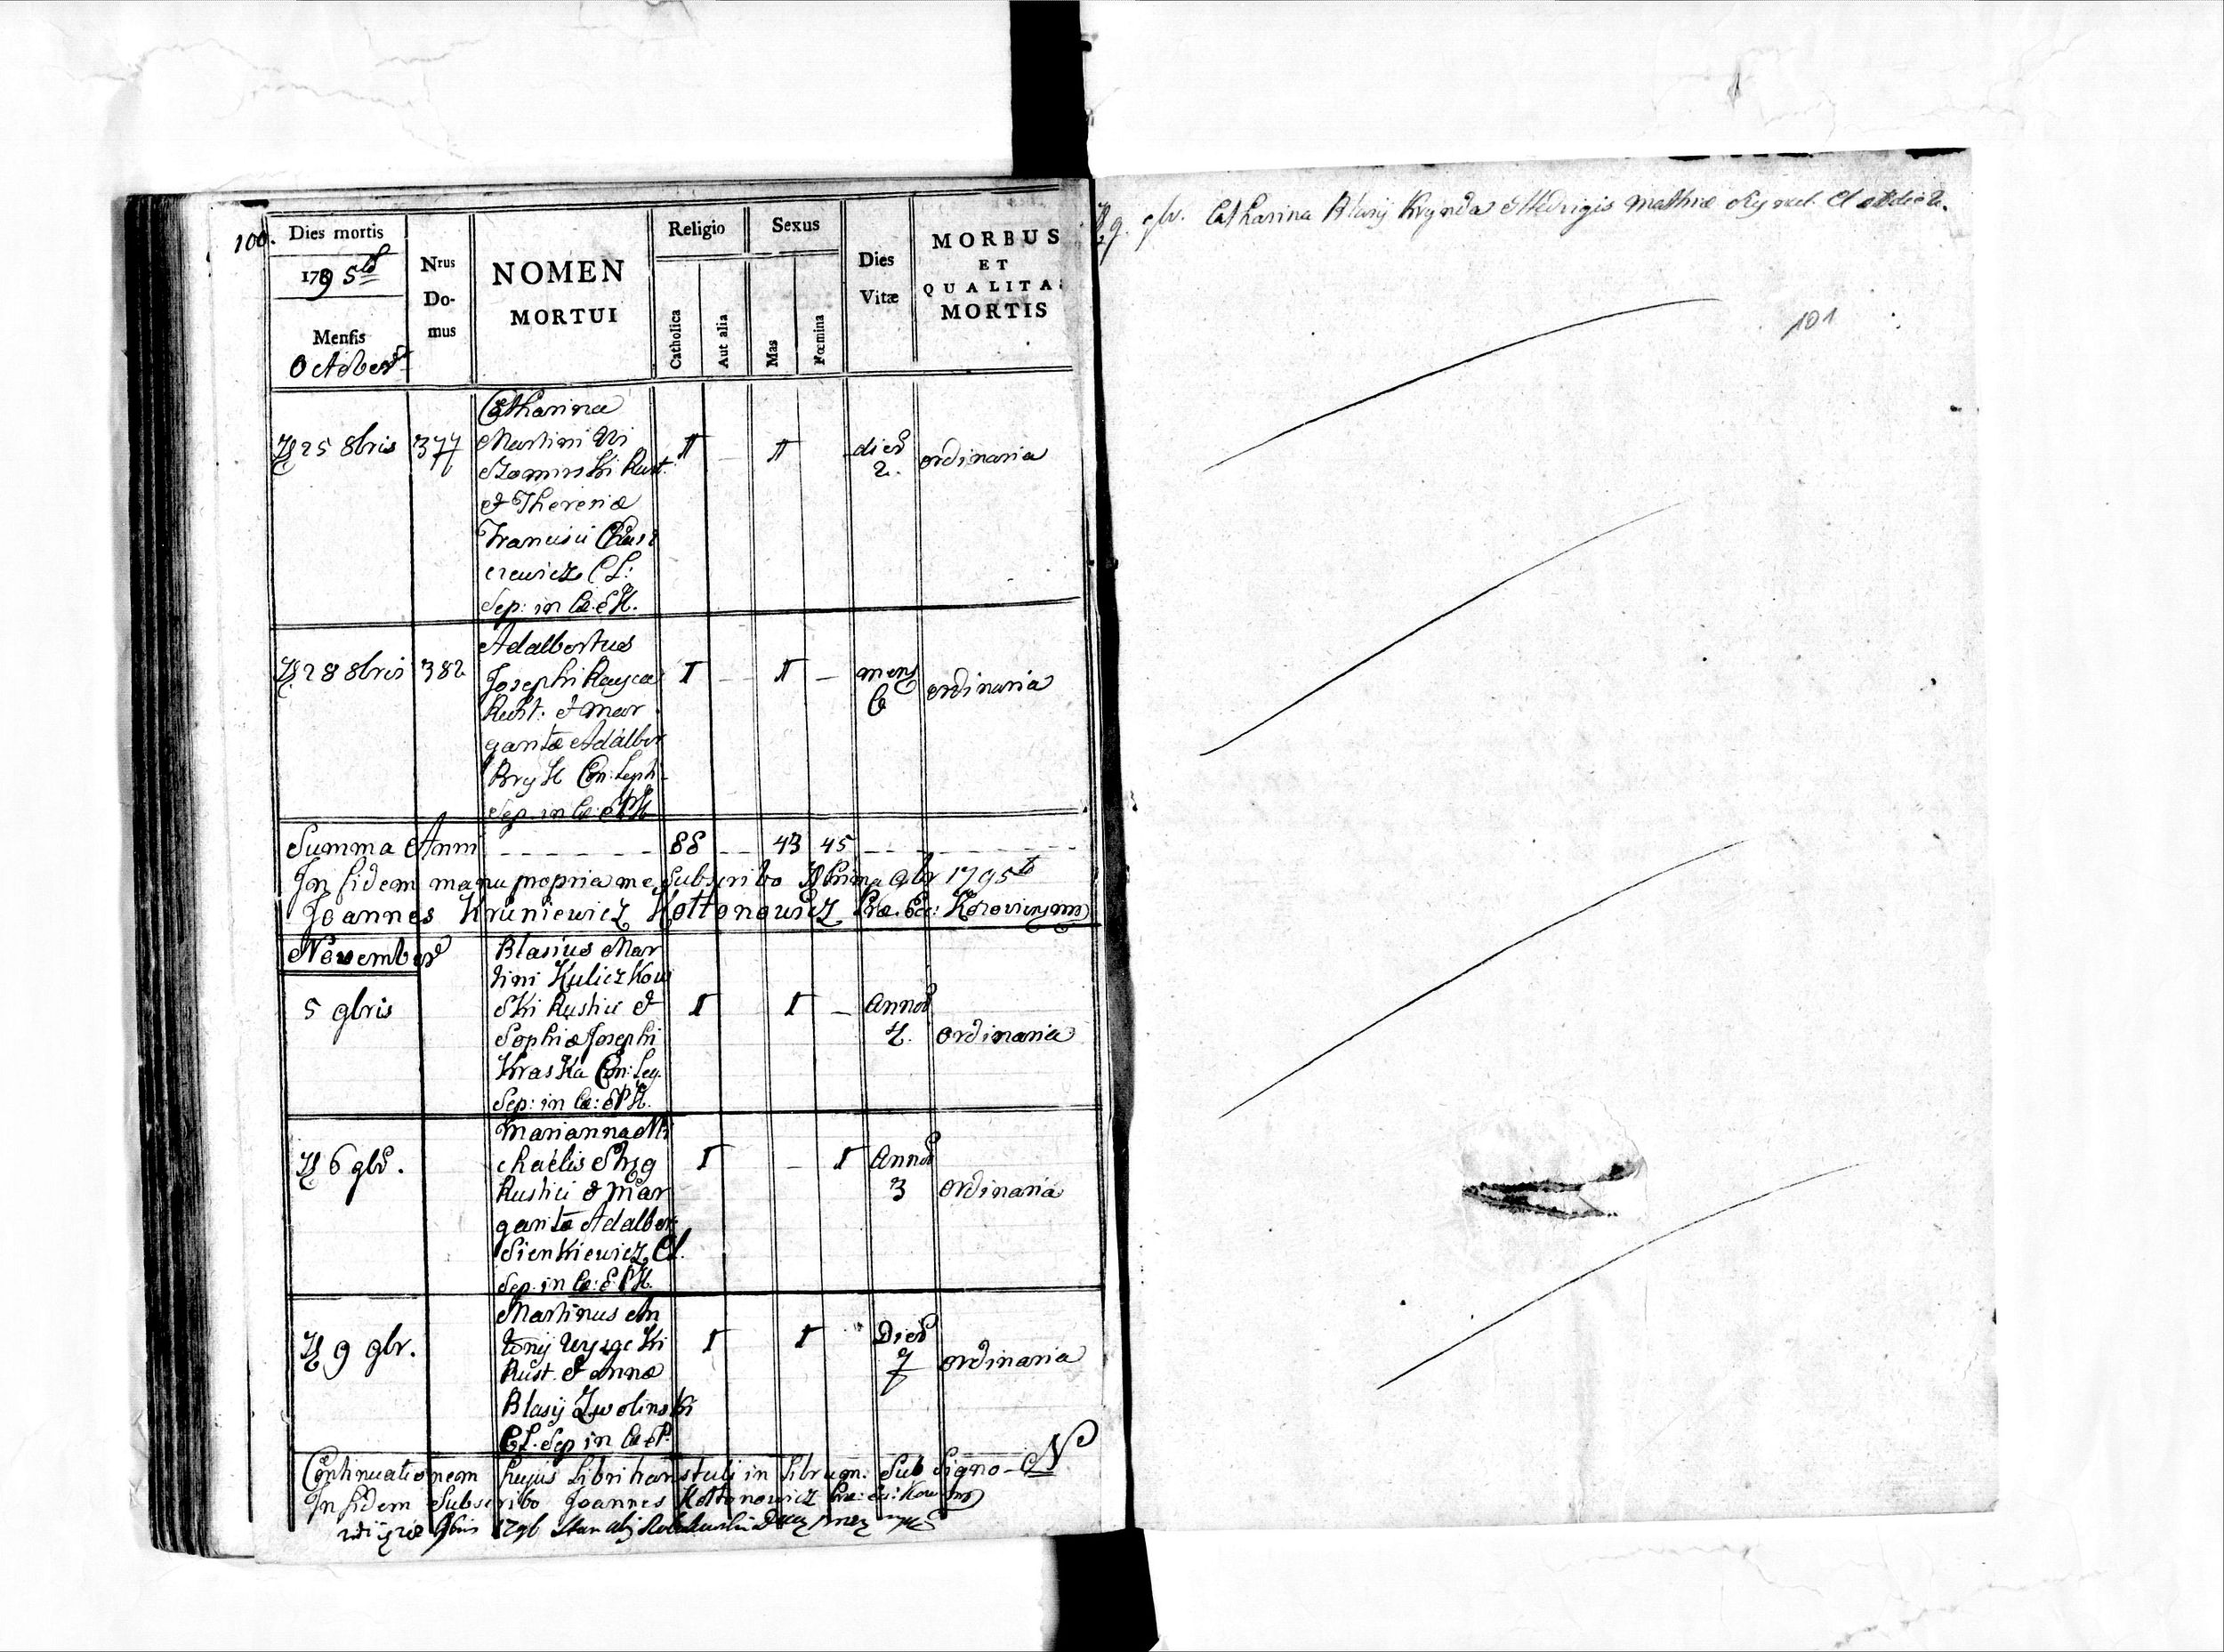 100.
Dies mortis
1795to
Mensis
October
Nrus
Do-
mus
NOMEN
MORTUI
Religio
Catholica
Aut alia
Sexus
Mas
Fœmina
Dies
Vitæ
MORBUS
ET
QUALITAS
MORTIS
25 8bris 377
Catharina
Martini
Rust.
et Theresiæ
Francisci
crewicz C L:
Sep: in Cæ: E K.
I – I
dies
2.
ordinaria
28 8bris 382
Adalbertus
Josephi Rayca
Rust. et Mar
garitæ Adalber
Bryk Con: Legit
Sep. in Cæ: E P K
I – I –
mens
6
ordinaria
Summa Anni 88 43 45
In fidem manu propria me Subscribo Prima 9br 1795to
Joannes Kruniewicz Kottonowicz Præ. Ecc:
November
5 9bris
Blasius Mar
tini Kuliczkow
ski Rustici et
Sophiæ Josephi
Kraska Con: Leg.
Sep: in Cæ: E P K.
I I –
Annos
2.
ordinaria
6 9br.
Marianna Mi
chaelis
Rustici et Mar
garitæ Adalber
Sienkiewicz CL.
Sep. in Cæ: E P K.
I – I
Annos
3
ordinaria
9 9br.
Martinus An
tonij
Rust. et Annæ
Blasij Zwolinski
CL. Sep in Cæ E P.
I I
Dies
7
ordinaria
Continuationem hujus Libri transtuli in Librum: Sub Signo – N
In fidem Subscribo Joannes Kottonowicz Præ: Ecc:
9 9br. Catharina Blasij Krynda et Hedvigis Mathiæ CL dies 2.
101